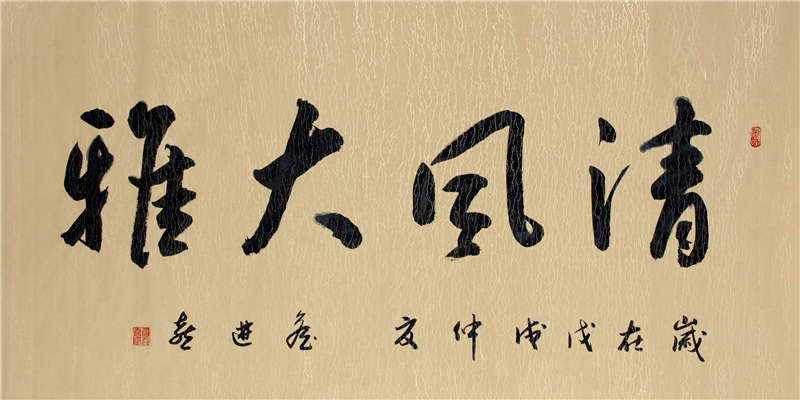 清風大雅
歲在戊戌仲夏 進